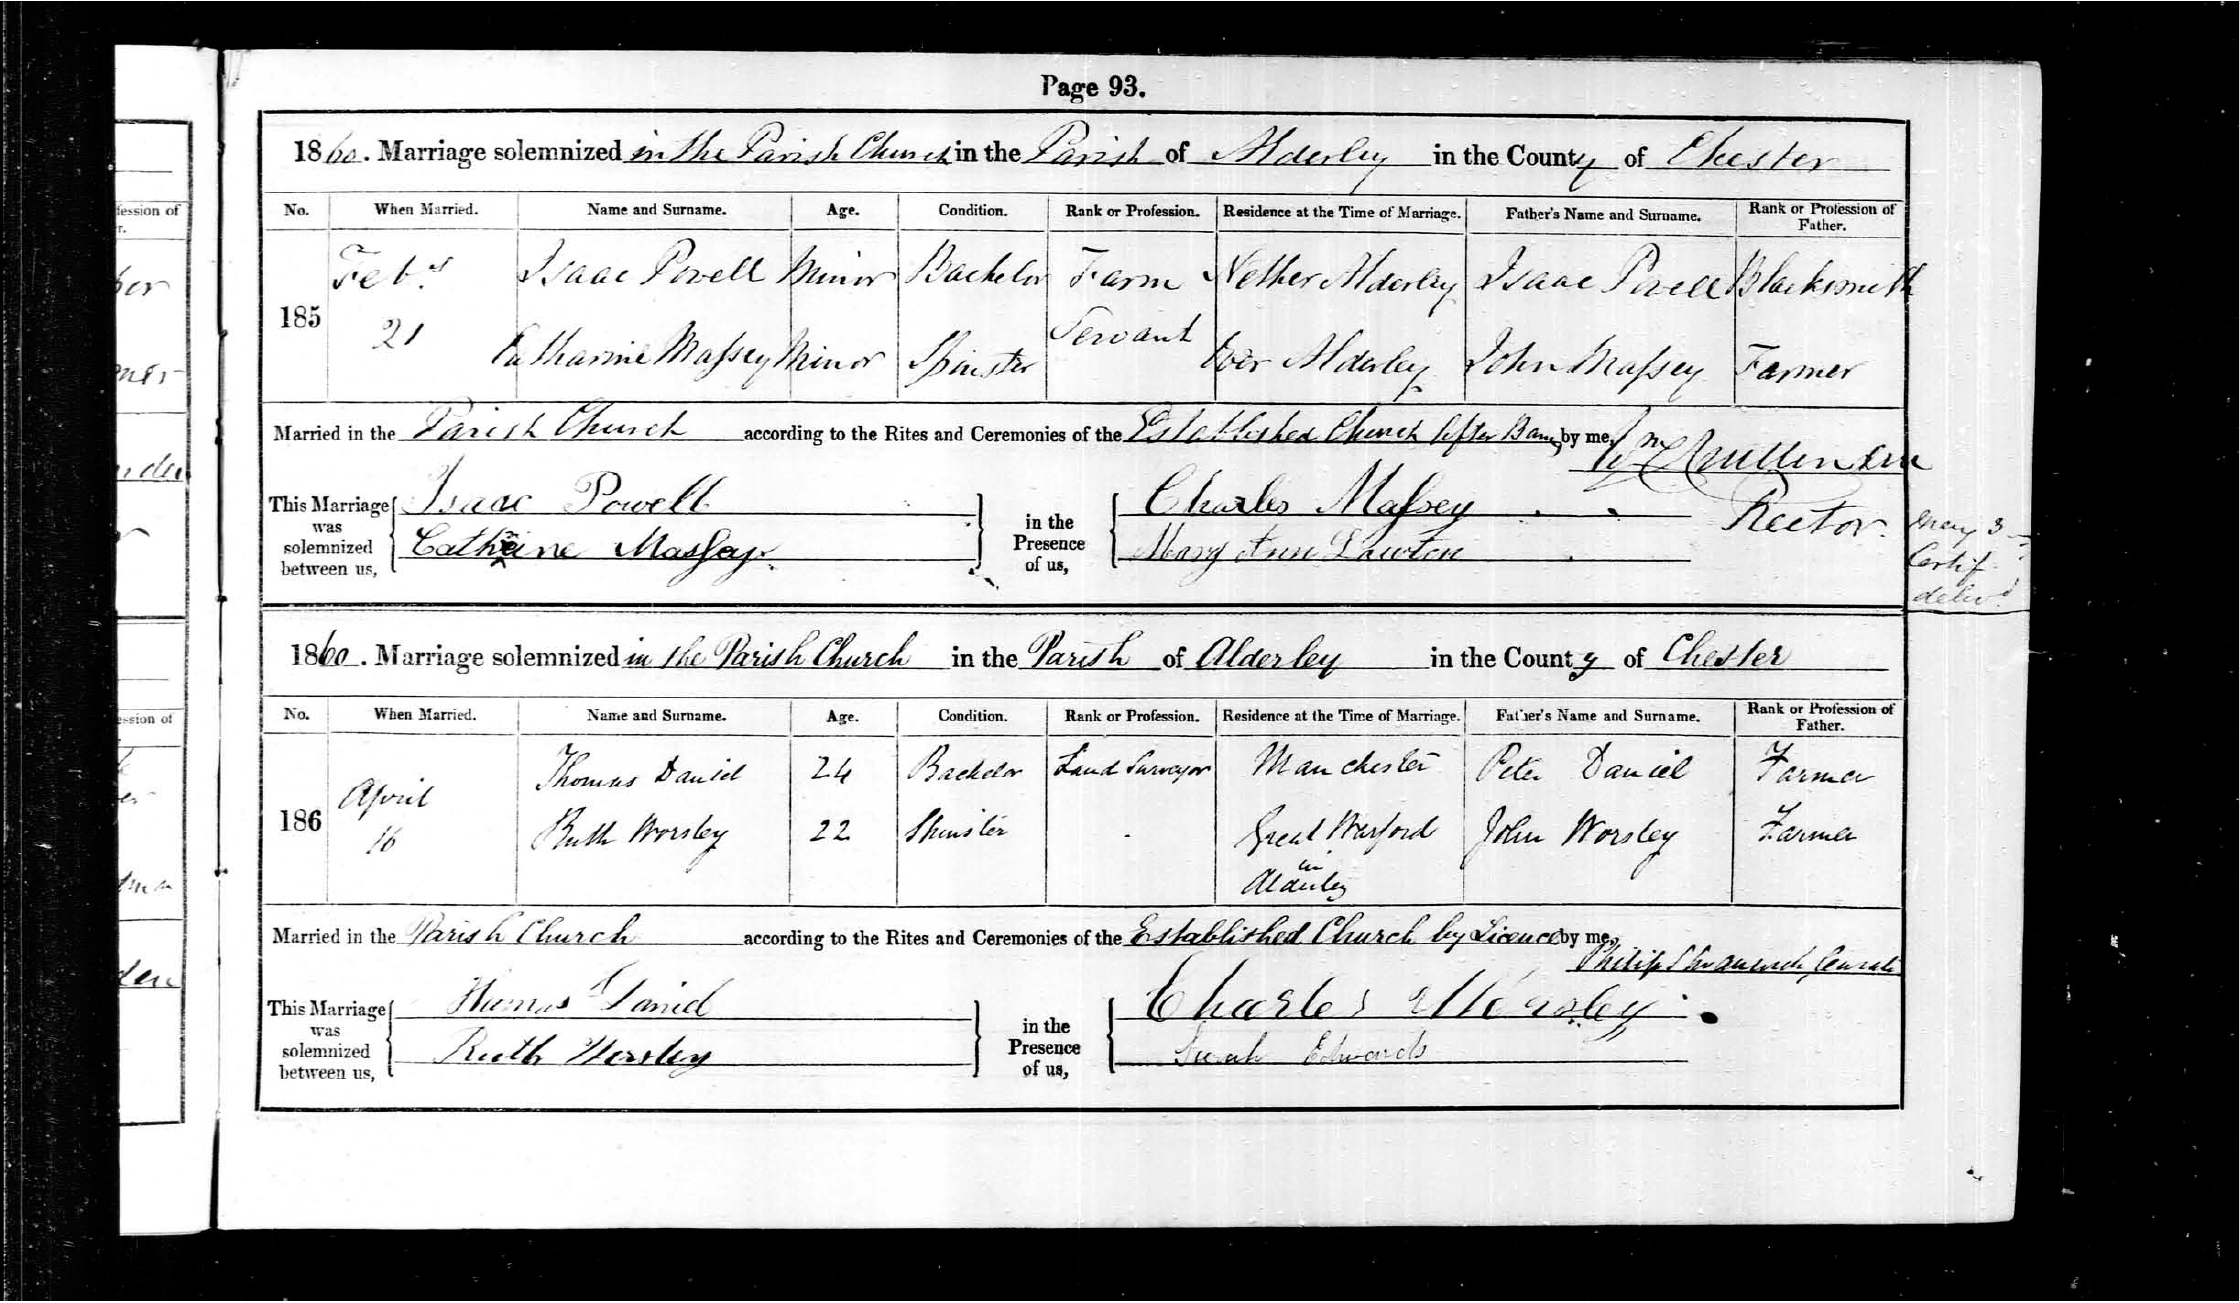 Page 93.
1860. Marriage solemnized in the Parish Church in the Parish of Alderley in the County of Chester
No. When Married. Name and Surname. Age. Condition. Rank or Profession. Residence at the Time of Marriage. Father's Name and Surname. Rank or Profession of Father.
185 Feby 21 Isaac Powell Minor Bachelor Farm Servant Nether Alderley Isaac Powell Blacksmith
Catharine Massey Minor Spinster Over Alderley John Massey Farmer
Married in the Parish Church according to the Rites and Ceremonies of the Established Church after Banns by me,
Rector.
This Marriage was solemnized between us, Isaac Powell in the Presence of us, Charles Massey
Catherine Massey Mary Ann Lawton
May 3
Certif.
delivd
1860. Marriage solemnized in the Parish Church in the Parish of Alderley in the County of Chester
No. When Married. Name and Surname. Age. Condition. Rank or Profession. Residence at the Time of Marriage. Father's Name and Surname. Rank or Profession of Father.
186 April 16 Thomas Daniel 24 Bachelor Land Surveyor Manchester Peter Daniel Farmer
Ruth Worsley 22 Spinster Great Warford in Alderley John Worsley Farmer
Married in the Parish Church according to the Rites and Ceremonies of the Established Church by Licence by me,
Philip Curate
This Marriage was solemnized between us, Thomas Daniel in the Presence of us, Charles Worsley
Ruth Worsley Sarah Edwards